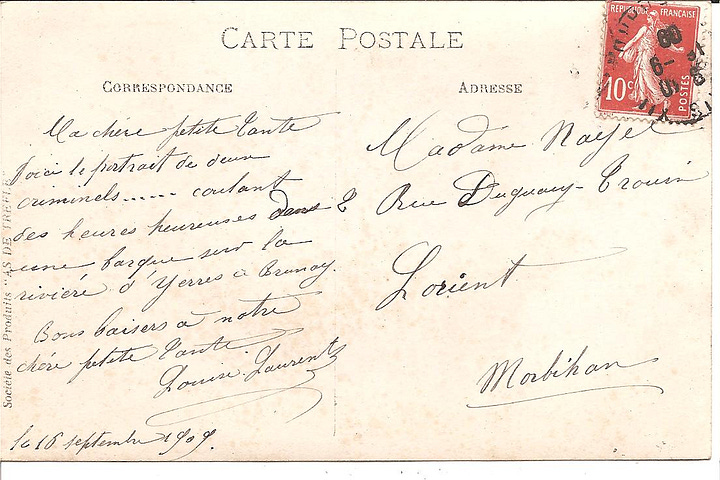 CARTE POSTALE
CORRESPONDANCE
Ma chère petite Tante
Voici le portait de deux
criminels...... coulant
des heures heureuses dans
une barque sur la
rivière d'Yerres à Brunoy.
Bons baisers à notre
chère petite Tante
Louise Laurent
le 16 septembre 1909.
ADRESSE
Madame Naye
2 Rue Duguay-Trouin
Lorient
Morbihan
REPUBLIQUE FRANÇAISE
10 c
POSTES
Société des Produits "AS DE TREFLE"